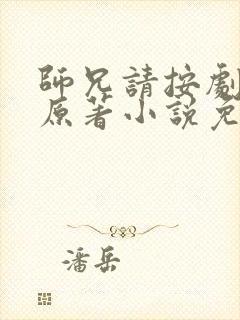 師兄請按劇
原著小說免
潘岳